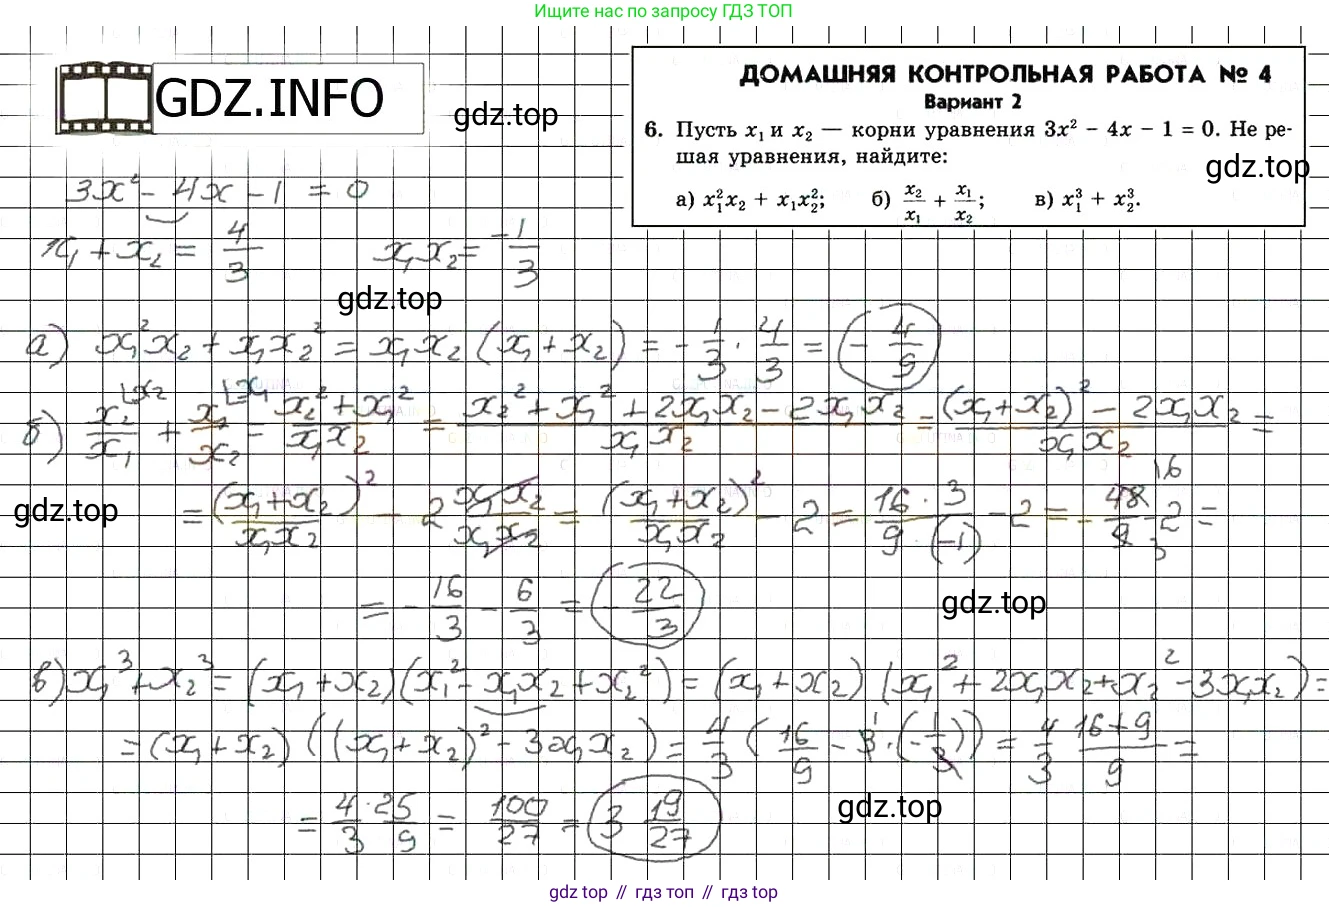 Ищите нас по запросу ГДЗ ТОП
GDZ.INFO
gdz.top
ДОМАШНЯЯ КОНТРОЛЬНАЯ РАБОТА № 4
Вариант 2
6. Пусть x₁ и x₂ — корни уравнения 3x² − 4x − 1 = 0. Не ре-
шая уравнения, найдите:
gdz.top
а) x₁²x₂ + x₁x₂²; б) x₂/x₁ + x₁/x₂; в) x₁³ + x₂³.
3x² − 4x − 1 = 0
x₁ + x₂ = 4/3 x₁x₂ = −1/3
gdz.top
а) x₁²x₂ + x₁x₂² = x₁x₂(x₁ + x₂) = −1/3 · 4/3 = −4/9
б) x₂/x₁ + x₁/x₂ = (x₂² + x₁²)/(x₁x₂) = (x₂² + x₁² + 2x₁x₂ − 2x₁x₂)/(x₁x₂) = ((x₁ + x₂)² − 2x₁x₂)/(x₁x₂) =
gdz.top
= (x₁ + x₂)²/(x₁x₂) − 2 x₁x₂/(x₁x₂) = (x₁ + x₂)²/(x₁x₂) − 2 = 16 · 3/(9 · (−1)) − 2 = −48/9 − 2 =
= −16/3 − 6/3 = −22/3
gdz.top
в) x₁³ + x₂³ = (x₁ + x₂)(x₁² − x₁x₂ + x₂²) = (x₁ + x₂)(x₁² + 2x₁x₂ + x₂² − 3x₁x₂) =
= (x₁ + x₂)((x₁ + x₂)² − 3x₁x₂) = 4/3 (16/9 − 3 · (−1/3)) = 4/3 (16 + 9)/9 =
= 4/3 · 25/9 = 100/27 = 3 19/27
gdz.top
gdz top // гдз топ // gdz top